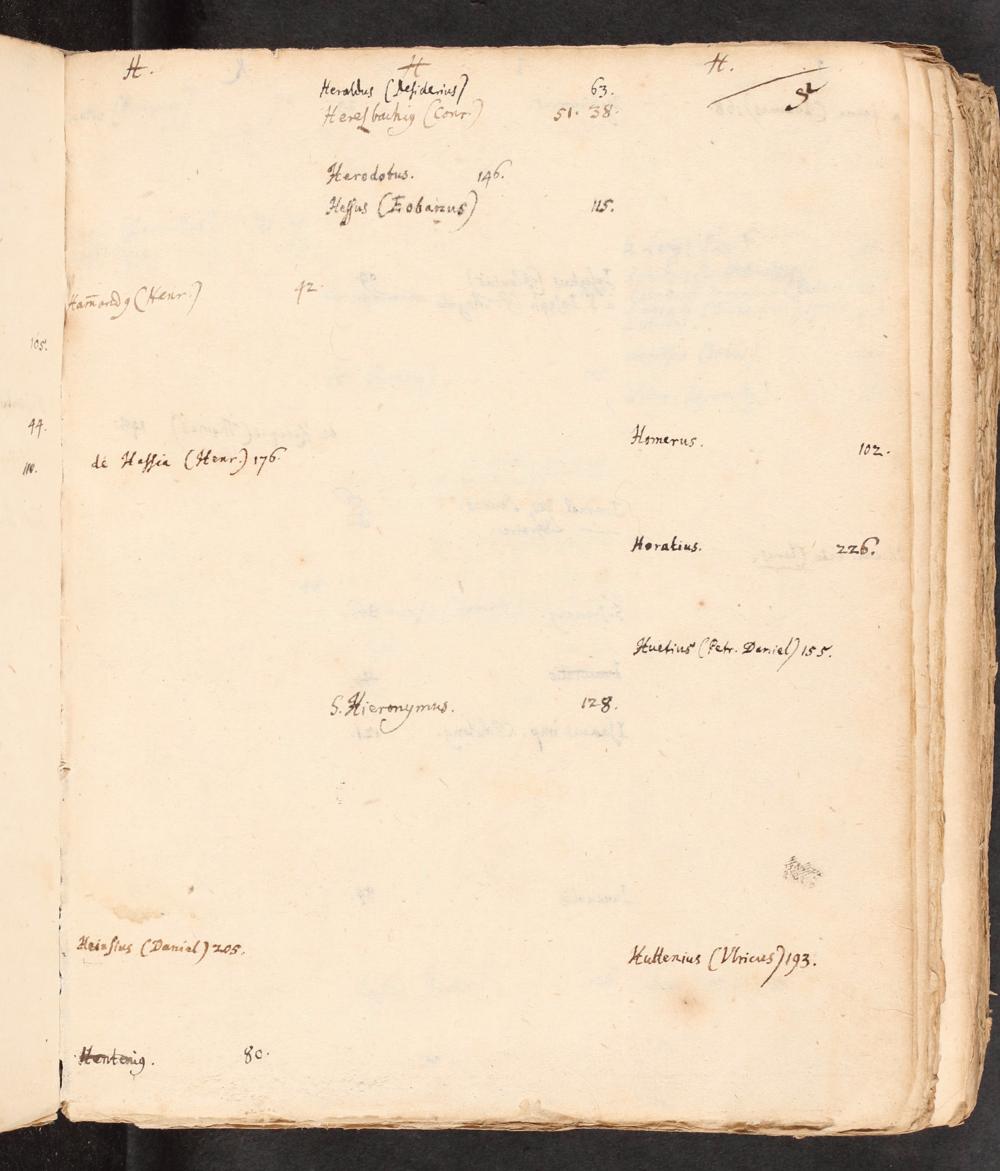 H.
Ham̄ondꝯ (Henr.) 42.
de Hassia (Henr.) 176.
Heinsius (Daniel) 205.
Henteniꝯ. 80.
H
Heraldus (Desiderius) 63.
Heresbachiꝯ (Conr.) 51. 38.
Herodotus. 146.
Hessus (Eobanus) 115.
S. Hieronymus. 128.
H.
52
Homerus. 102.
Horatius. 226.
Huetius (Petr. Daniel) 155.
Huttenius (Ulricus) 193.
105.
44.
110.